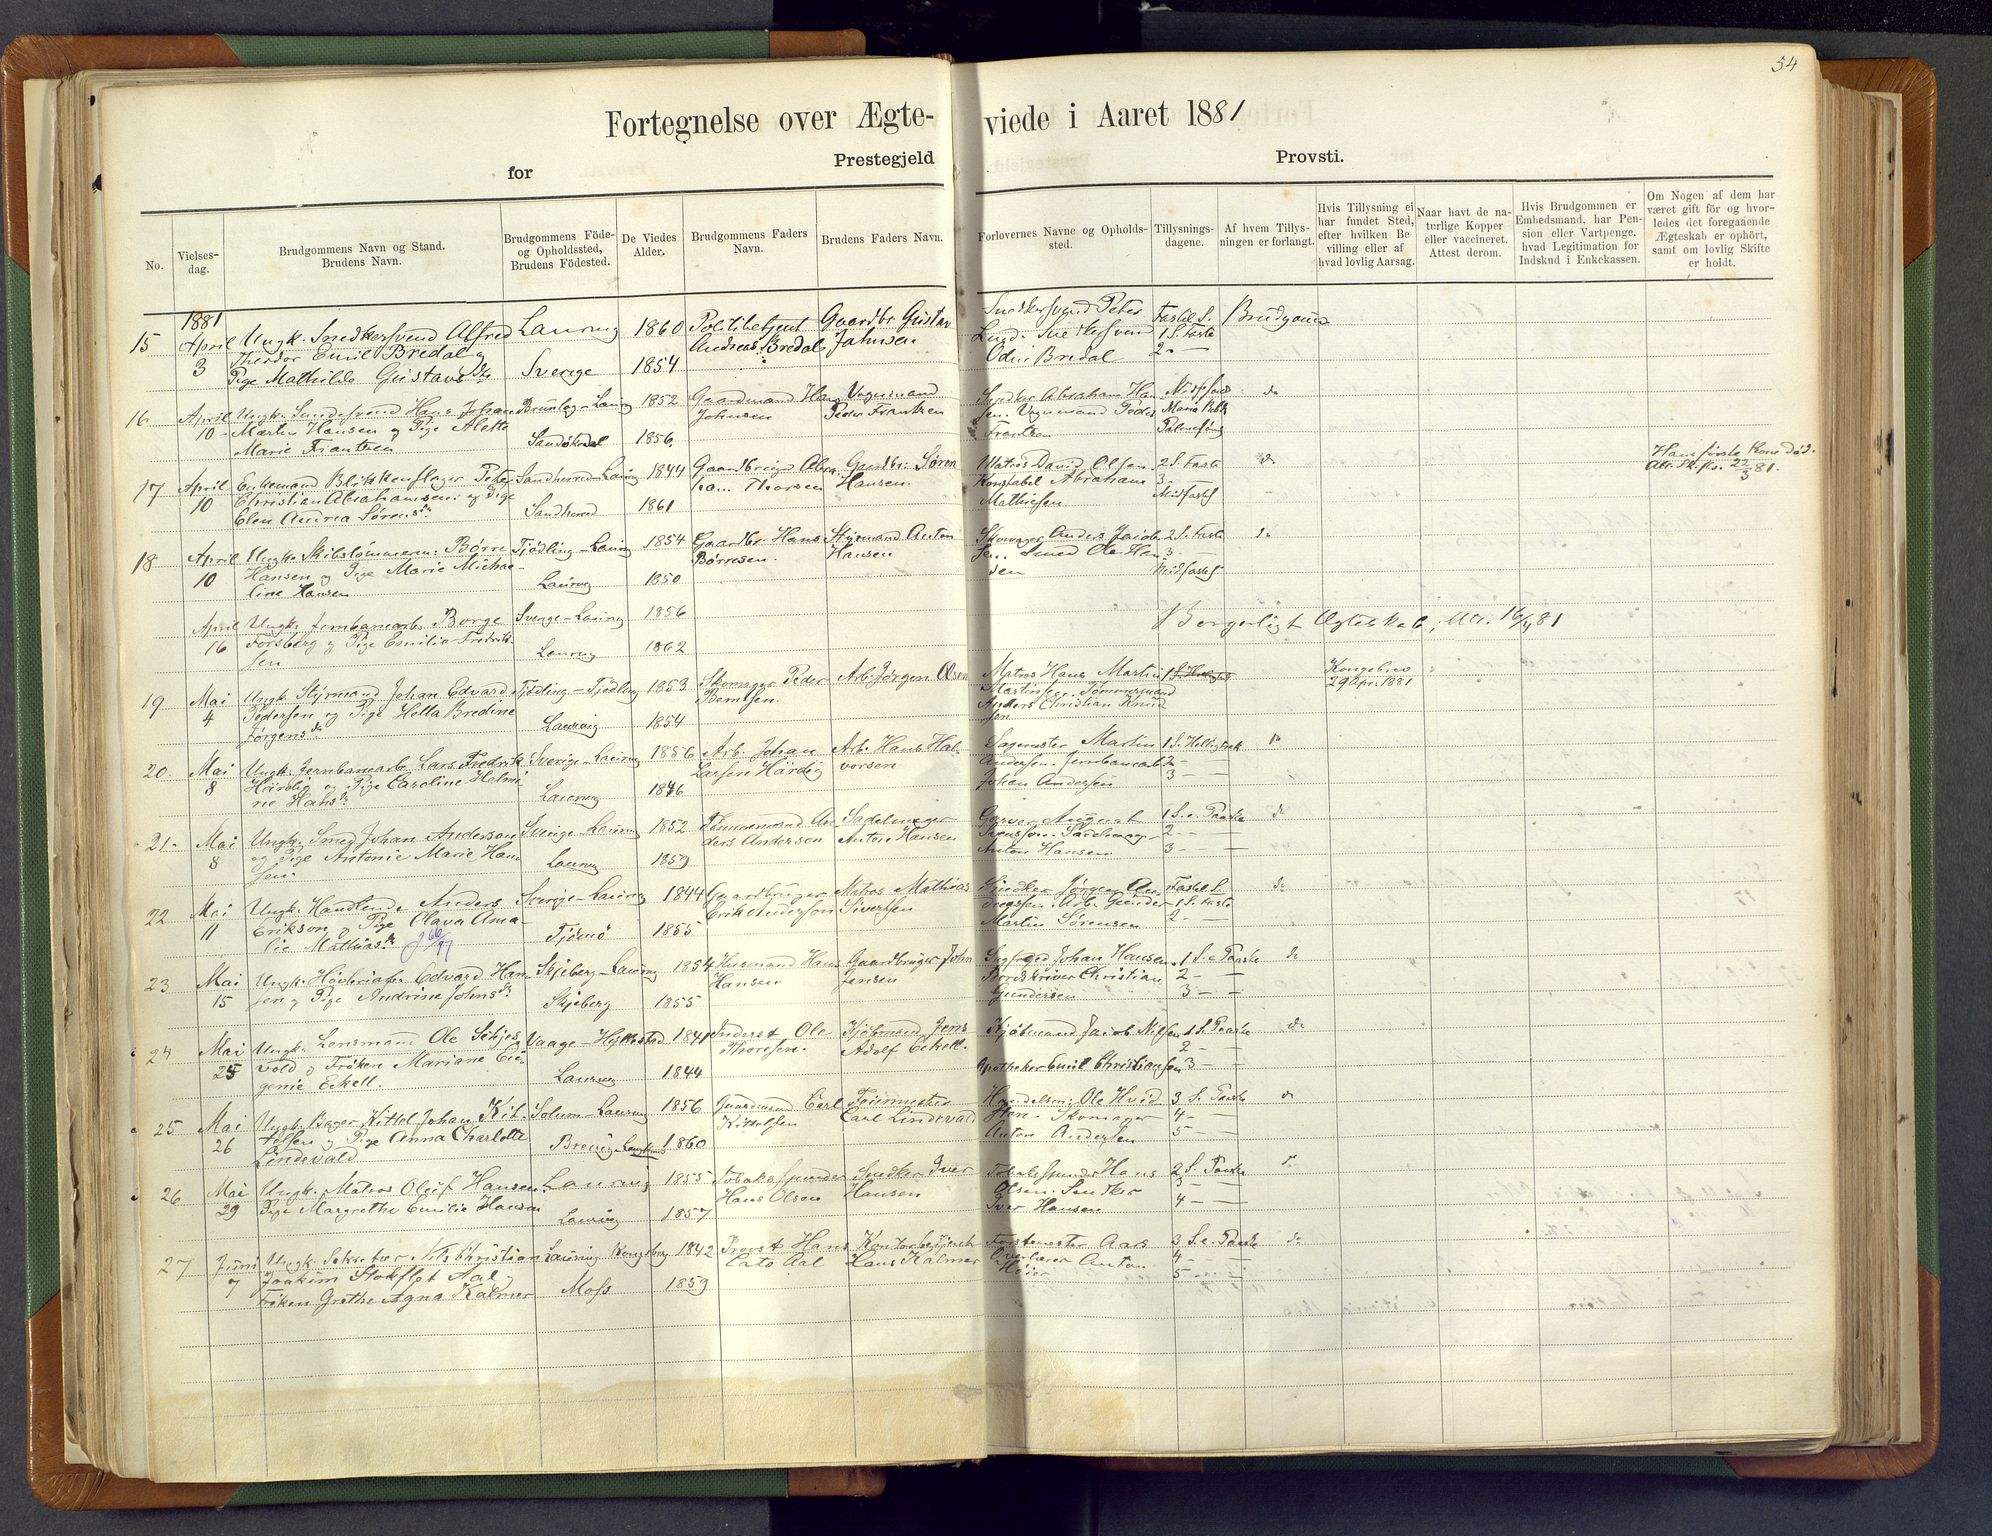 54
Fortegnelse over Ægte- viede i Aaret 1881
for Prestegjeld Provsti.
No.
Vielses-
dag.
Brudgommens Navn og Stand.
Brudens Navn.
Brudgommens Føde-
og Opholdssted,
Brudens Fødested.
De Viedes
Alder.
Brudgommens Faders
Navn.
Brudens Faders Navn.
Forlovernes Navne og Opholds-
sted.
Tillysnings-
dagene.
Af hvem Tillys-
ningen er forlangt.
Hvis Tillysning ei
har fundet Sted,
efter hvilken Be-
villing eller af
hvad lovlig Aarsag.
Naar havt de na-
turlige Kopper
eller vaccineret.
Attest derom.
Hvis Brudgommen er
Embedsmand, har Pen-
sion eller Vartpenge.
hvad Legitimation for
Indskud i Enkekassen.
Om Nogen af dem har
været gift før og hvor-
ledes det foregaaende
Ægteskab er ophørt,
samt om lovlig Skifte
er holdt.
1881
15 April 3 Ungk. Snedkersvend Alfred
Theodor Emil Bredal og
Pige Mathilde Gustavsdr
Laurvig 1860
Sverige 1854
Politibetjent
Andreas Bredal
Gaardbr Gustav
Johnsen
Snedkersvend Peter
Lund. Snedkersvend
Odin Bredal
Fastel. S.
1 S. Faste
2 — —
Brudgom
16 April 10 Ungk. Hans Johan
Martin Hansen og Pige Alette
Marie Frantzen
Brunlag - Laurvig 1852
Sandøkedal 1856
Gaardmand Hans
Johnsen
Vognmand
Peder Frantzen
Snedker Abraham Han
sen. Vognmand Peder
Frantzen
Midfaste
Maria Bebb
Palmesøndag
do
17 April 10 Enkemand Blikkenslager Peter
Christian Abrahamsen og Pige
Elen Andrea Sørensdr
Sandherred - Laurvig 1844
Sandherred 1861
Gaardbruger Abra
ham Thorsen
Gaardbr. Søren
Hansen
Matros David Olsen
Konstabel Abraham
Mathisen
2 S. Faste
3 — —
Midfaste
do
Hans første Kone død.
Att. Sk.fr. 22/3 81.
18 April 10 Ungk. Skibstømmerm. Børre
Hansen og Pige Marie Micha-
line Hansen
Tjødling - Laurvig 1854
Laurvig 1850
Gaardbr. Hans
Børresen
Styrmand Anton
Hansen
Skomager Anders Jacob
sen. Smed Ole Han
sen
2 S. Faste
3 — —
Midfaste
do
April 16 Ungk. Jernbanearb. Borge
Forsberg og Pige Emilie Fredrik-
sen
Sverige - Laurvig 1856
Laurvig 1862
Borgerligt Ægteskab, 16/4 81
19 Mai 4 Ungk. Styrmand Johan Edvard
Pedersen og Pige Hella Bredine
Jørgensdr
Tjødling - Tjødling 1853
Laurvig 1854
Skomager Peder
Berntsen.
Arb. Jørgen Olsen
Matros Hans Martin
Martinsen. Tømmermand
Anders Christian Knud
sen
Kongebrev
29 Apr. 1881
20. Mai 8 Ungk. Jernbanearb. Lars Fredrik
Härdig og Pige Caroline Helmi
ne Hansdr
Sverige - Laurvig 1856
Laurvig 1846
Arb. Johan
Larsen Härdig
Arb. Hans Hal-
vorsen
Sagmester Martin
Andersen. Jernbanearb.
Johan Andersen
2 —
3 — —
do
21. Mai 8 Ungk. Smed Johan Anderson
og Pige Antonie Marie Han
sen.
Sverige - Laurvig 1852
Laurvig 1859
Tømmermand An
ders Anderson
Sadelmager
Anton Hansen
Garver August
Svensson. Sadelmager
Anton Hansen
1 S. e. Paaske
2 — —
3 — —
do
22 Mai 11 Ungk. Handlende Anders
Erikson og Pige Olava Ama-
lie Mathiasdr
Sverige - Laurvig 1844
Tjømø 1855
Gaardbruger
Erik Anderson
Matros Mathias
Sivertsen
Snedker Jørgen An
dreassen. Arb. Gunder
Martin Sørensen
Fastel. S.
1 S. Faste
2 — —
do
23 Mai 15 Ungk. Høvleriarb. Edvard Han
sen og Pige Andrine Johnsdr
Skjeberg - Laurvig 1854
Skjeberg 1855
Husmand Hans
Hansen
Gaardbruger John
Jensen
Sagfoged Johan Hansen.
Bordskriver Christian
Gundersen
1 S. e Paaske
2 — —
3 — —
do
24 Mai 25 Ungk. Lensmand Ole
vold og Frøken Mariane Eu-
genie Eckell.
Vaage - Hyllestad 1841
Laurvig 1844
Inderst Ole
Thoresen.
Kjøbmand Jens
Adolf Eckell.
Kjøbmand Jacob Nilsen
Apotheker Emil Christiansen
1 S. Paaske
2 — —
3 — —
do
25 Mai 26 Ungk. Bager Kittel Johan Kit-
telsen og Pige Anna Charlotte
Lindevald
Solum - Laurvig 1856
Brevig - 1860
Gaardmand Carl
Kittelsen
Carl Lindevald
Handelsm. Ole Hvid
sten. Skomager
Anton Andersen
3 S. Paaske
4 — —
5 — —
do
26 Mai 29 Ungk. Matros Oluf Hansen
Pige Margrethe Emilie Hansen
Laurvig 1855
Laurvig 1857
Tobakspinder
Hans Olsen
Snedker Iver
Hansen
Tobakspinder Hans
Olsen. Snedker
Iver Hansen
2 S. Paaske
3 — —
4 — —
do
27 Juni 7 Ungk. Sekretær Nils Christian
Joakim Stokflet Aal og
Frøken Grethe Agna Kalmer
Laurvig - Kongsberg 1842
Moss 1859
Provst Hans
Cato Aal
Kontorbetjent
Hans Kalmer
Forstmester Aars
Overlærer Anton
Høier
3 S. e. Paaske
4 —
5 — —
do